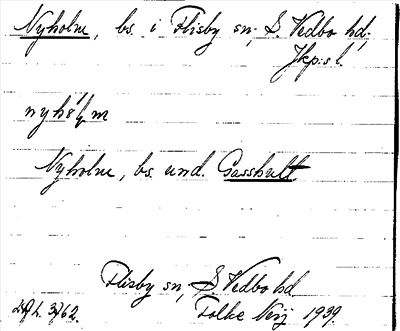 Nyholm, bs. i Flisby sn, S. Vedbo hd,
Jkp:s l.
Nyholm, bs. und. Gasshult.
Flisby sn, S. Vedbo hd.
Folke Neij 1939.